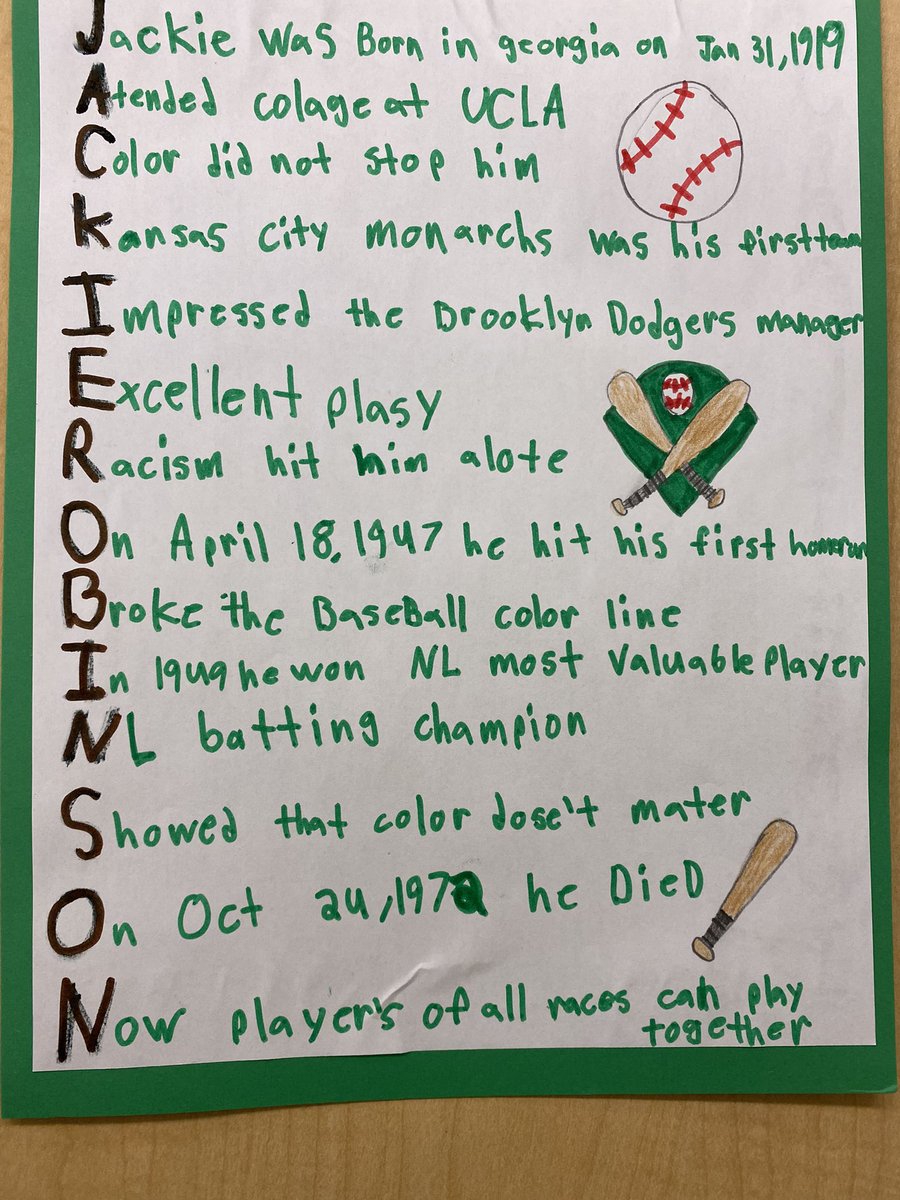 Jackie was Born in georgia on Jan 31, 1919
Attended colage at UCLA
Color did not stop him
Kansas city monarchs was his first team
Impressed the Brooklyn Dodgers manager
Excellent plasy
Racism hit him alote
On April 18, 1947 he hit his first homerun
Broke the BaseBall color line
In 1949 he won NL most Valuable Player
NL batting champion
Showed that color dose't mater
On Oct 24, 1972 he DieD
Now player's of all races can play
together